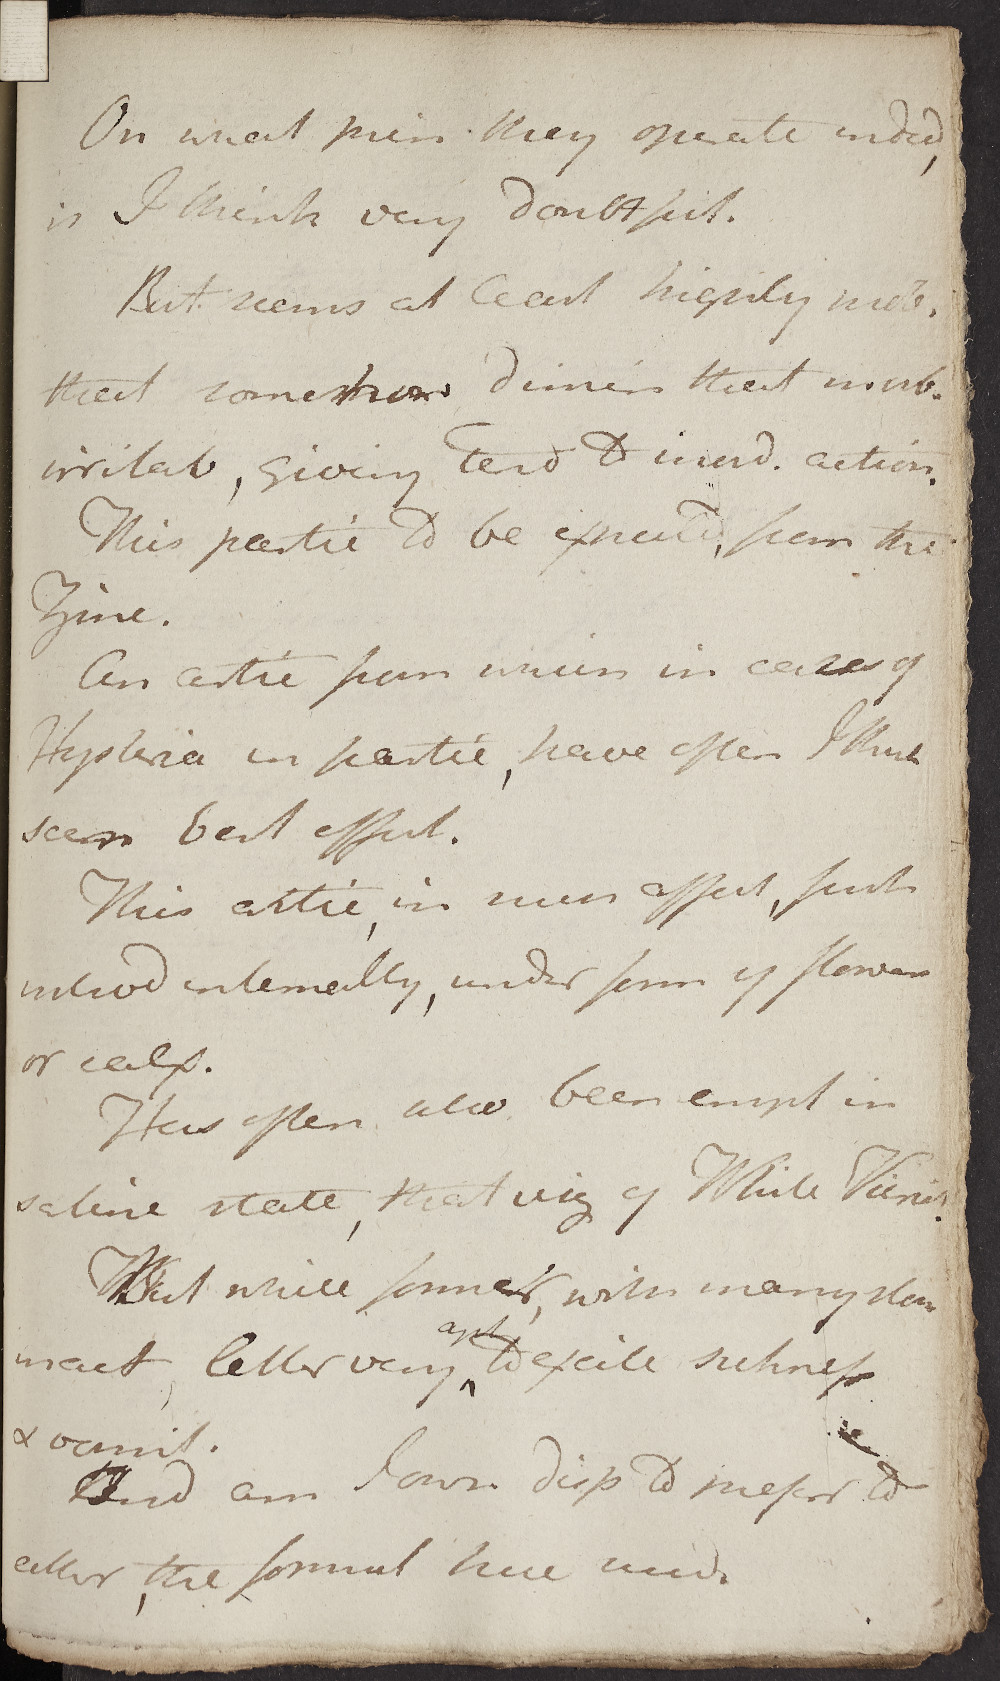 On what prin they operate inded,
is I think very doubtfull.
But seems at least highly prob.
that somehow dimin that morb.
irritab, giving tend to inord. action.
This partic to be expected, from the
Zinc.
An artic from which in cases of
Hysteria in partic, have often I think
seen best effect.
This artic, in such affect, first
introd internally, under form of flowers
or calx.
Has often also been empl in
saline state, that viz of White Vitriol.
But while former, with many stom
inact, latter very apt to excite sickness
& vomit.
And am I own disp to prefer to
either, the formul here